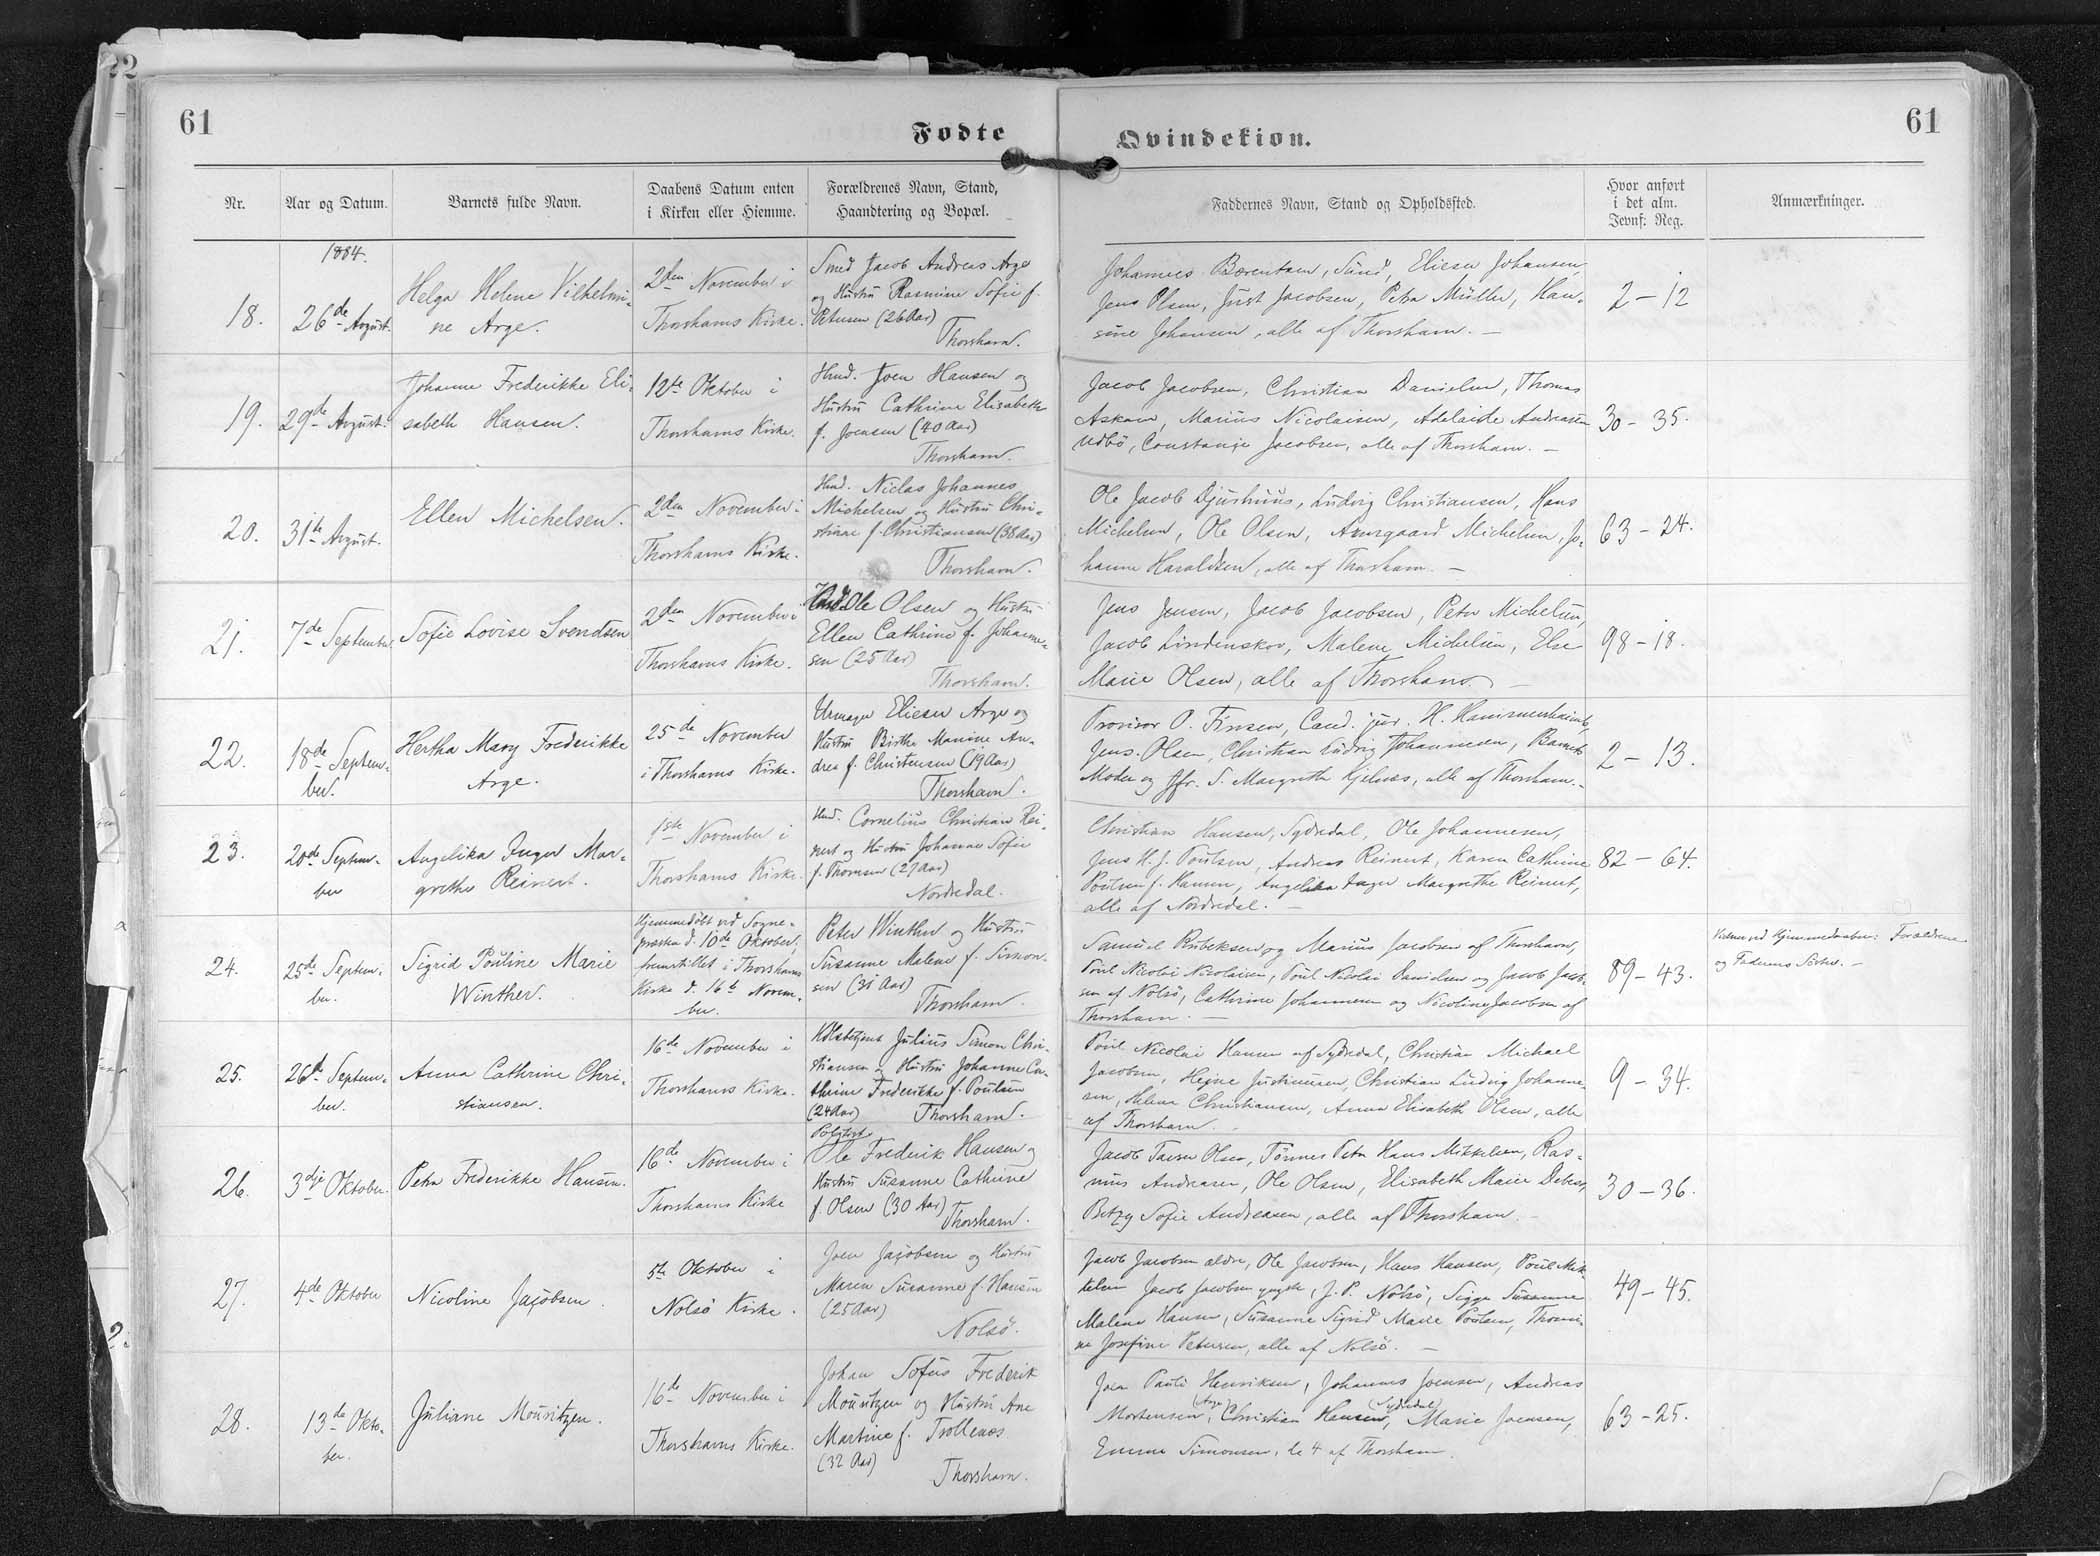 61
Fødte
Qvindekiøn.
61
Nr.
Aar og Datum.
Barnets fulde Navn.
Daabens Datum enten
i Kirken eller Hiemme.
Forældrenes Navn, Stand,
Haandtering og Bopæl.
Faddernes Navn, Stand og Opholdssted.
Hvor anført
i det alm.
Jevnf: Reg.
Anmærkninger.
1884.
18.
26de August.
Helga Helene Vilhelmi-
ne Arge.
2den November i
Thorshavns Kirke.
Smed Jacob Andreas Arge
og Hustru Rasmine Sofie f.
Petersen (26 Aar)
Thorshavn.
Johannes Berentsen, Sund, Elieser Johansen,
Jens Olsen, Just Jacobsen, Petra Müller, Han-
sine Johansen, alle af Thorshavn. —
2 – 12
19.
29de August.
Johanne Frederikke Eli-
sabeth Hansen.
12te Oktober i
Thorshavns Kirke.
Hmd. Joen Hansen og
Hustru Cathrine Elisabeth
f. Joensen (40 Aar)
Thorshavn.
Jacob Jacobsen, Christian Danielsen, Thomas
Askam, Marius Nicolaisen, Adelaide Andreasen
Udbø, Constanze Jacobsen, alle af Thorshavn. —
30 – 35.
20.
31te August.
Ellen Michelsen.
2den November i
Thorshavns Kirke.
Hmd. Niclas Johannes
Michelsen og Hustru Chri-
stinae f. Christiansen (38 Aar)
Thorshavn.
Ole Jacob Djurhuus, Ludvig Christiansen, Hans
Michelsen, Ole Olsen, Amsgaard Michelsen, Jo-
hanne Haraldsen, alle af Thorshavn. —
63 – 24.
21.
7de September
Sofie Lovise Svendsen
2den November i
Thorshavns Kirke.
Ole Olsen og Hustru
Ellen Cathrine f. Johanne-
sen (25 Aar)
Thorshavn.
Jens Jensen, Jacob Jacobsen, Peter Michelsen,
Jacob Lindenskov, Malene Michelsen, Else
Marie Olsen, alle af Thorshavn. —
98 – 18.
22.
18de Septem-
ber.
Hertha Mary Frederikke
Arge.
25de November
i Thorshavns Kirke.
Urmager Elieser Arge og
Hustru Birthe Marine An-
drea f. Christensen (19 Aar)
Thorshavn.
Provisor O. Finsen, Cand. jur. H. Hammershaimb,
Jens Olsen, Christian Ludvig Johannesen, Barnets
Moder og Jfr. S. Margreth Kjelnæs, alle af Thorshavn. –
2 – 13.
23.
20de Septem-
ber
Angelika Inger Mar-
grethe Reinert.
1ste November i
Thorshavns Kirke.
Hmd. Cornelius Christian Rei-
nert og Hustru Johanne Sofie
f. Thomsen (27 Aar)
Nordredal.
Christian Hansen, Sydredal, Ole Johannesen,
Jens H. J. Poulsen, Andreas Reinert, Karen Cathrine
Poulsen f. Hansen, Angelika Inger Margrethe Reinert,
alle af Nordredal. —
82 – 64.
24.
25de Septem-
ber.
Sigrid Pouline Marie
Winther.
Hjemmedøbt ved Sogne-
præsten d. 10de Oktober,
fremstillet i Thorshavns
Kirke d. 16de Novem-
ber.
Peter Winther og Hustru
Susanne Malene f. Simon-
sen (31 Aar)
Thorshavn.
Samuel Rubeksen og Marius Jacobsen af Thorshavn,
Poul Nicolai Nicolaisen, Poul Nicolai Danielsen og Jacob Jacob-
sen af Nolsø, Cathrine Johannesen og Nicoline Jacobsen af
Thorshavn. —
89 – 43.
Vidner ved Hjemmedaaben: Forældrene
og Faderens Søster. —
25.
26de Septem-
ber.
Anna Cathrine Chri-
stiansen.
16de November i
Thorshavns Kirke.
Julius Simon Chri-
stiansen og Hustru Johanne Ca-
thrine Frederikke f. Poulsen
(24 Aar) Thorshavn.
Poul Nicolai Hansen af Sydredal, Christian Michael
Jacobsen, Hejne Justinussen, Christian Ludvig Johanne-
sen, Helene Christiansen, Anna Elisabeth Olsen, alle
af Thorshavn.
9 – 34.
26.
3dje Oktober.
Petra Frederikke Hansen.
16de November i
Thorshavns Kirke
Politibt.
Ole Frederik Hansen og
Hustru Susanne Cathrine
f. Olsen (30 Aar)
Thorshavn.
Jacob Olsen, Tønnes Peter Hans Mikkelsen, Ras-
mus Andreasen, Ole Olsen, Elisabeth Marie Debes,
Betzy Sofie Andreasen, alle af Thorshavn. —
30 – 36.
27.
4de Oktober
Nicoline Jacobsen.
5te Oktober i
Nolsø Kirke.
Joen Jacobsen og Hustru
Maren Susanne f. Hansen
(25 Aar)
Nolsø.
Jacob Jacobsen ældre, Ole Jacobsen, Hans Hansen, Poul Mik-
kelsen Jacob Jacobsen yngre, J. P. Nolsø, Sigga Susanne
Malene Hansen, Susanne Sigrid Marie Poulsen, Thomi-
ne Josefine Petersen, alle af Nolsø. —
49 – 45.
28.
13de Okto-
ber.
Juliane Mouritzen.
16de November i
Thorshavns Kirke.
Johan Sofus Frederik
Mouritzen og Hustru Ane
Martine f. Trollenæs
(32 Aar)
Thorshavn.
Joen Pauli Henriksen, Johannes Joensen, Andreas
Mortensen, (Arge) Christian Hansen, (Sydredal) Marie Joensen,
Emma Simonsen, de 4 af Thorshavn.
63 – 25.